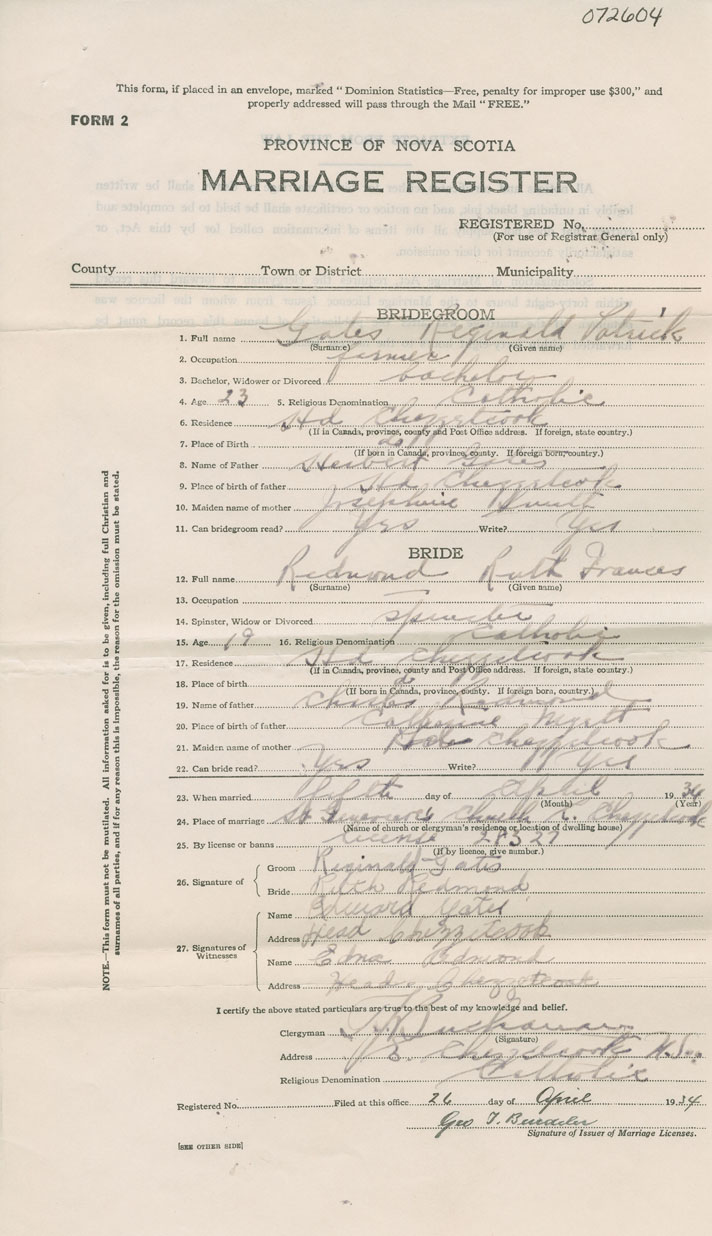 072604
This form, if placed in an envelope, marked "Dominion Statistics—Free, penalty for improper use $300," and
properly addressed will pass through the Mail "FREE."
FORM 2
PROVINCE OF NOVA SCOTIA
MARRIAGE REGISTER
REGISTERED No.
(For use of Registrar General only)
County Town or District Municipality
BRIDEGROOM
1. Full name Gates Reginald Patrick
(Surname) (Given name)
2. Occupation farmer
3. Bachelor, Widower or Divorced bachelor
4. Age 23 5. Religious Denomination Catholic
6. Residence Hd Chezzetcook
(If in Canada, province, county and Post Office address. If foreign, state country.)
7. Place of Birth do
(If born in Canada, province, county. If foreign born, country.)
8. Name of Father Herbert Gates
9. Place of birth of father Hd Chezzetcook
10. Maiden name of mother Josephine
11. Can bridegroom read? Yes Write? Yes
BRIDE
12. Full name Redmond Ruth Frances
(Surname) (Given name)
13. Occupation
14. Spinster, Widow or Divorced spinster
15. Age 19 16. Religious Denomination Catholic
17. Residence Hd Chezzetcook
(If in Canada, province, county and Post Office address. If foreign, state country.)
18. Place of birth do
(If born in Canada, province, county. If foreign born, country.)
19. Name of father Charles Redmond
20. Place of birth of father Catherine
21. Maiden name of mother Chezzetcook
22. Can bride read? Yes Write? Yes
23. When married fifth day of April 1934
(Month) (Year)
24. Place of marriage St Church Chezzetcook
(Name of church or clergyman's residence or location of dwelling house)
25. By license or banns license 28327
(If by licence, give number.)
26. Signature of
Groom Reginald Gates
Bride Ruth Redmond
27. Signatures of Witnesses
Name Edward Gates
Address Head Chezzetcook
Name Edna Redmond
Address Head Chezzetcook
I certify the above stated particulars are true to the best of my knowledge and belief.
Clergyman Buchanan
(Signature)
Address Chezzetcook N.S.
Religious Denomination Catholic
Registered No. Filed at this office 26 day of April 1934
Geo T.
Signature of Issuer of Marriage Licenses.
[SEE OTHER SIDE]
NOTE.—This form must not be mutilated. All information asked for is to be given, including full Christian and
surnames of all parties, and if for any reason this is impossible, the reason for the omission must be stated.